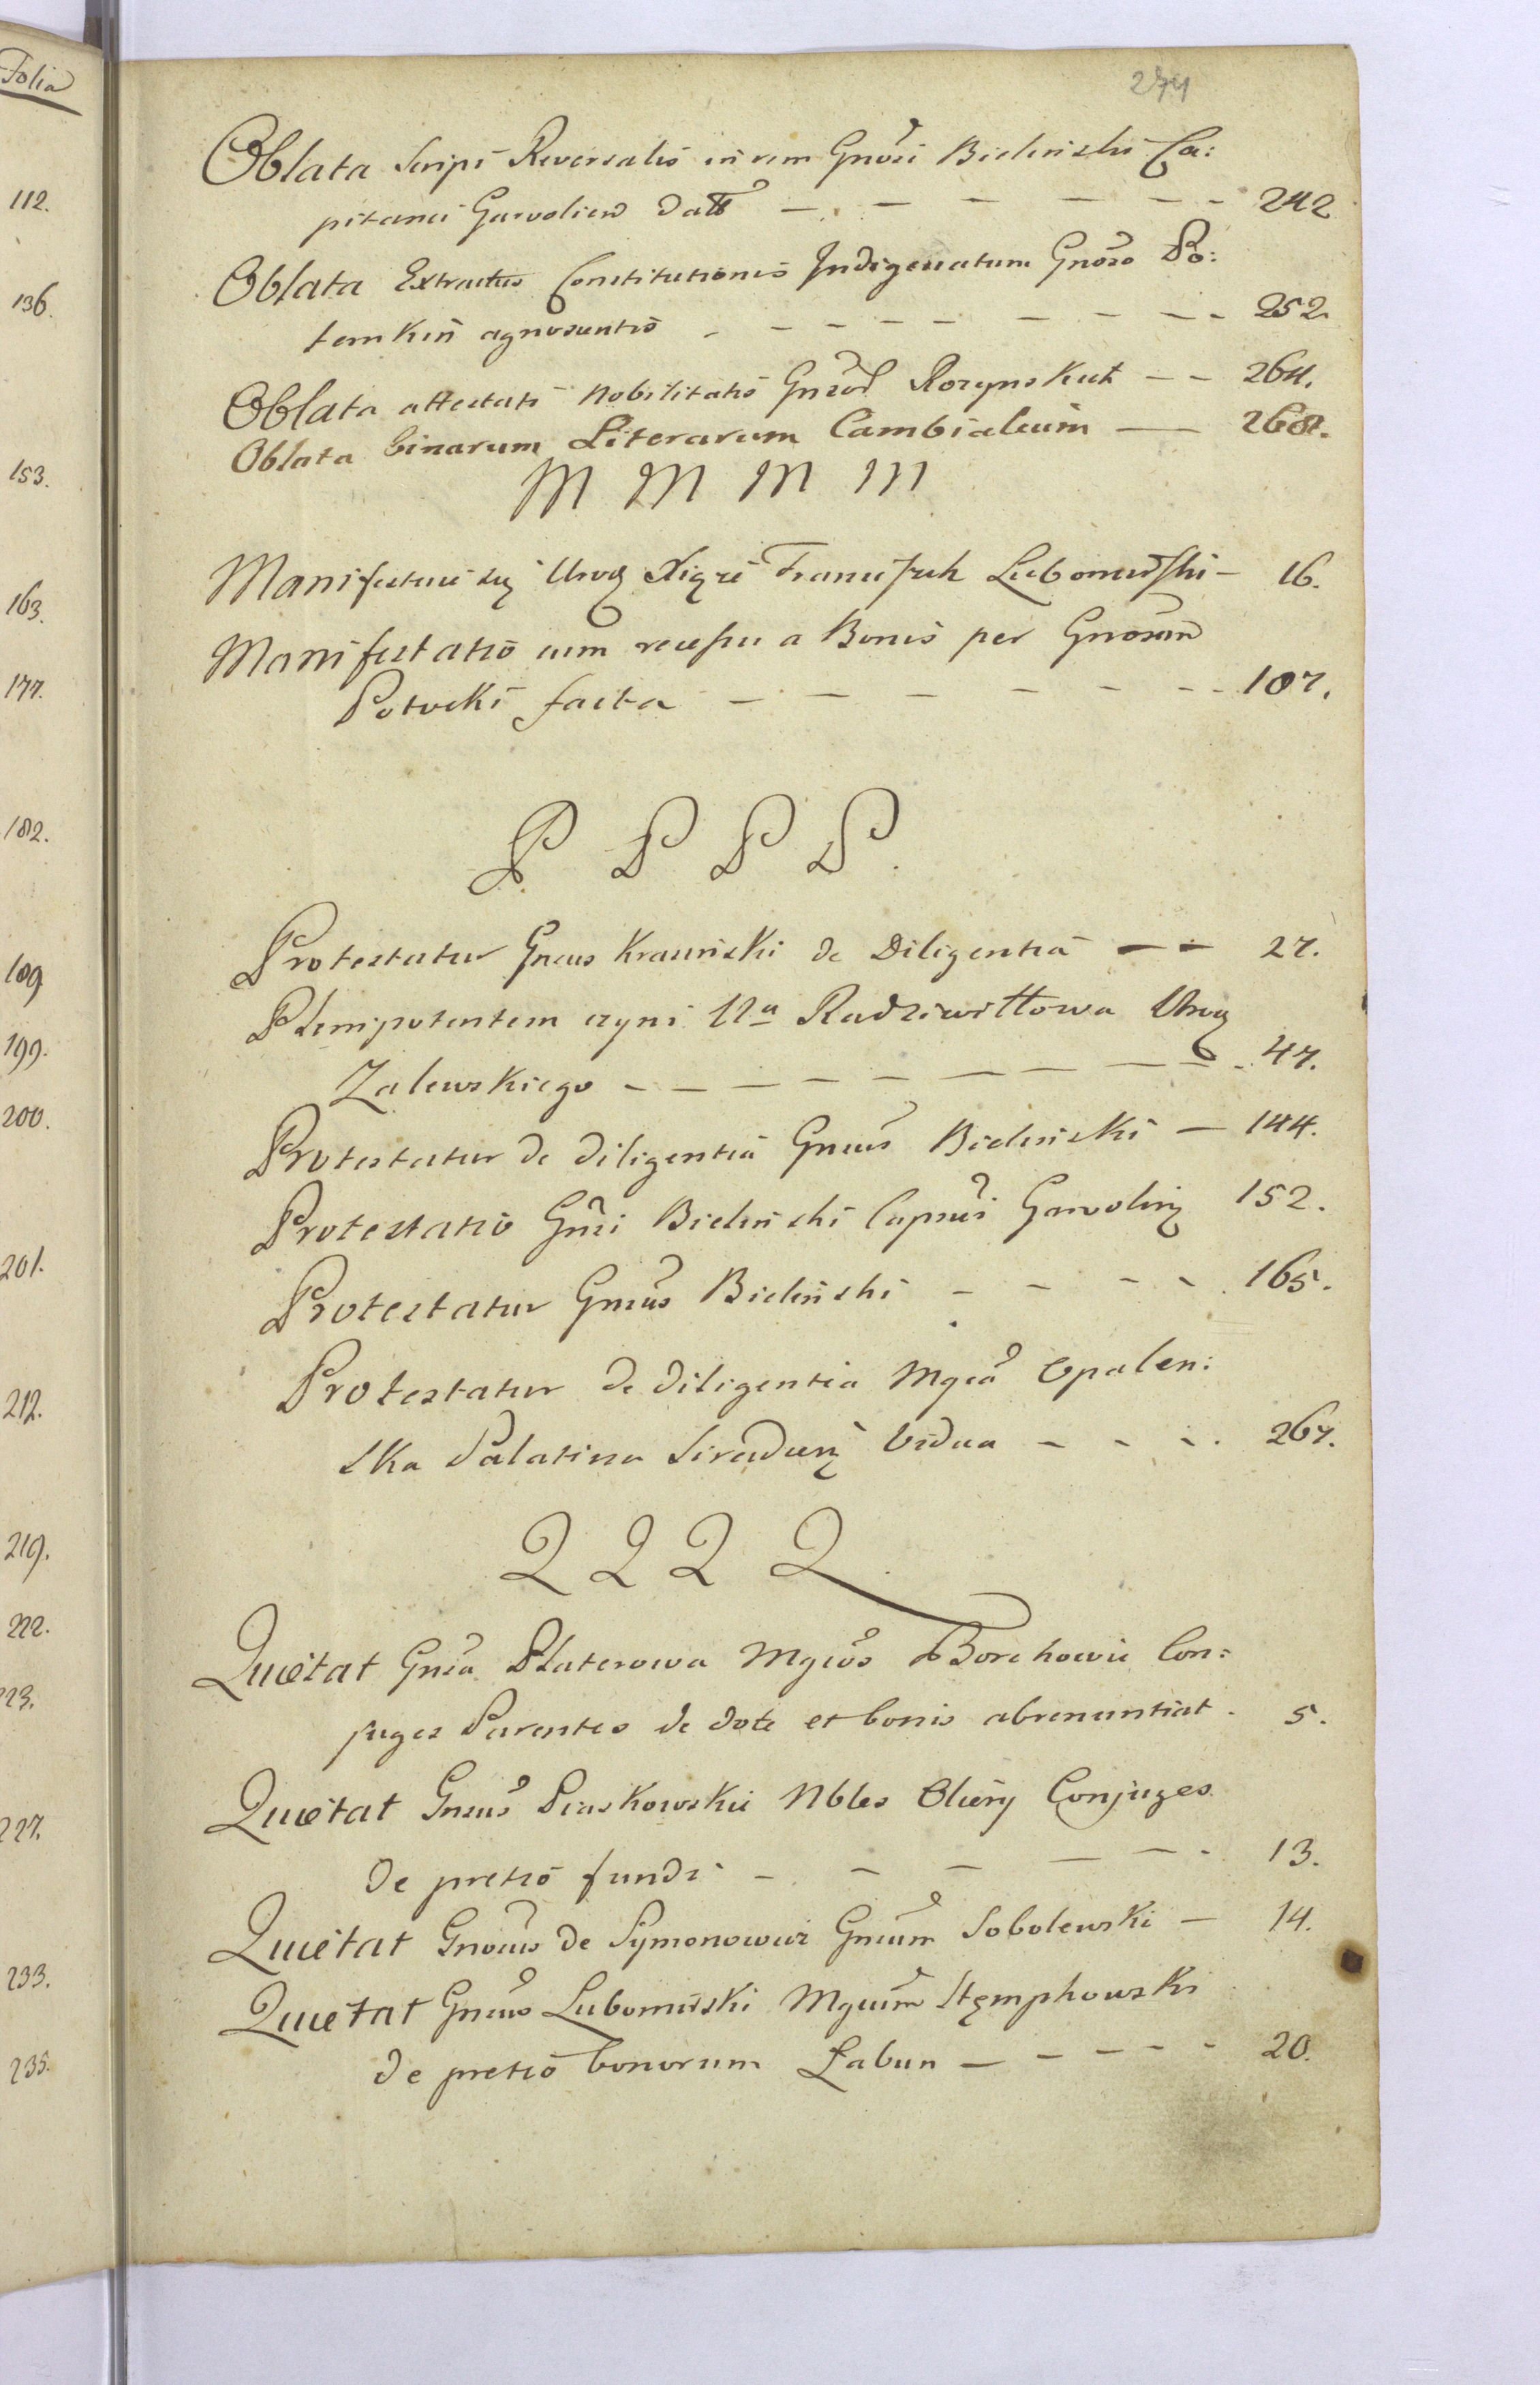 Folia
112.
136.
153.
163.
177.
182.
189
199.
200.
201.
212.
219.
222.
223.
227.
233.
235.
274
Oblata Scripi Reversalis in rem Gnosi Bielinski Ca:
pitanei Garvolien datt 242
Oblata Extractus Constitutionis Indigenatum Gnoso Po:
temkin agnoscentis 252.
Oblata attestati Nobilitatis Rozynskich 264.
Oblata binarum Literarum Cambialium 268.
M M M M
Manifestuie się Urog Xiąże Franciszek Lubomirski 16.
Manifestatio cum recessu a Bonis per Gnosum
Potocki facta 107.
P P P P.
Protestatur Gneus Krasinski de Diligentia 27.
Plenipotentem czyni Radziwiłłowa Urog
Zalewskiego 47.
Protestatur de diligentia Gneus Bielinski 144.
Protestatio Gnsi Bielinski Capnei Garvolin 152.
Protestatur Gnsus Bielinski 165.
Protestatur de diligentia Mgca Opalen:
ska Palatina Siradien Vidua 267.
Q Q Q Q
Quietat Gnsa Platerowa Mgcos Borchowie Con:
juges Parentes de dote et bonis abrenuntiat 5.
Quietat Gnsus Piaskowski Nbles Conjuges
de pretio fundi 13.
Quietat Gnosus de Symonowicz Gneum Sobolewski 14.
Quietat Gneus Lubomirski Mgcum Stęmpkowski
de pretio bonorum Łabun 20.